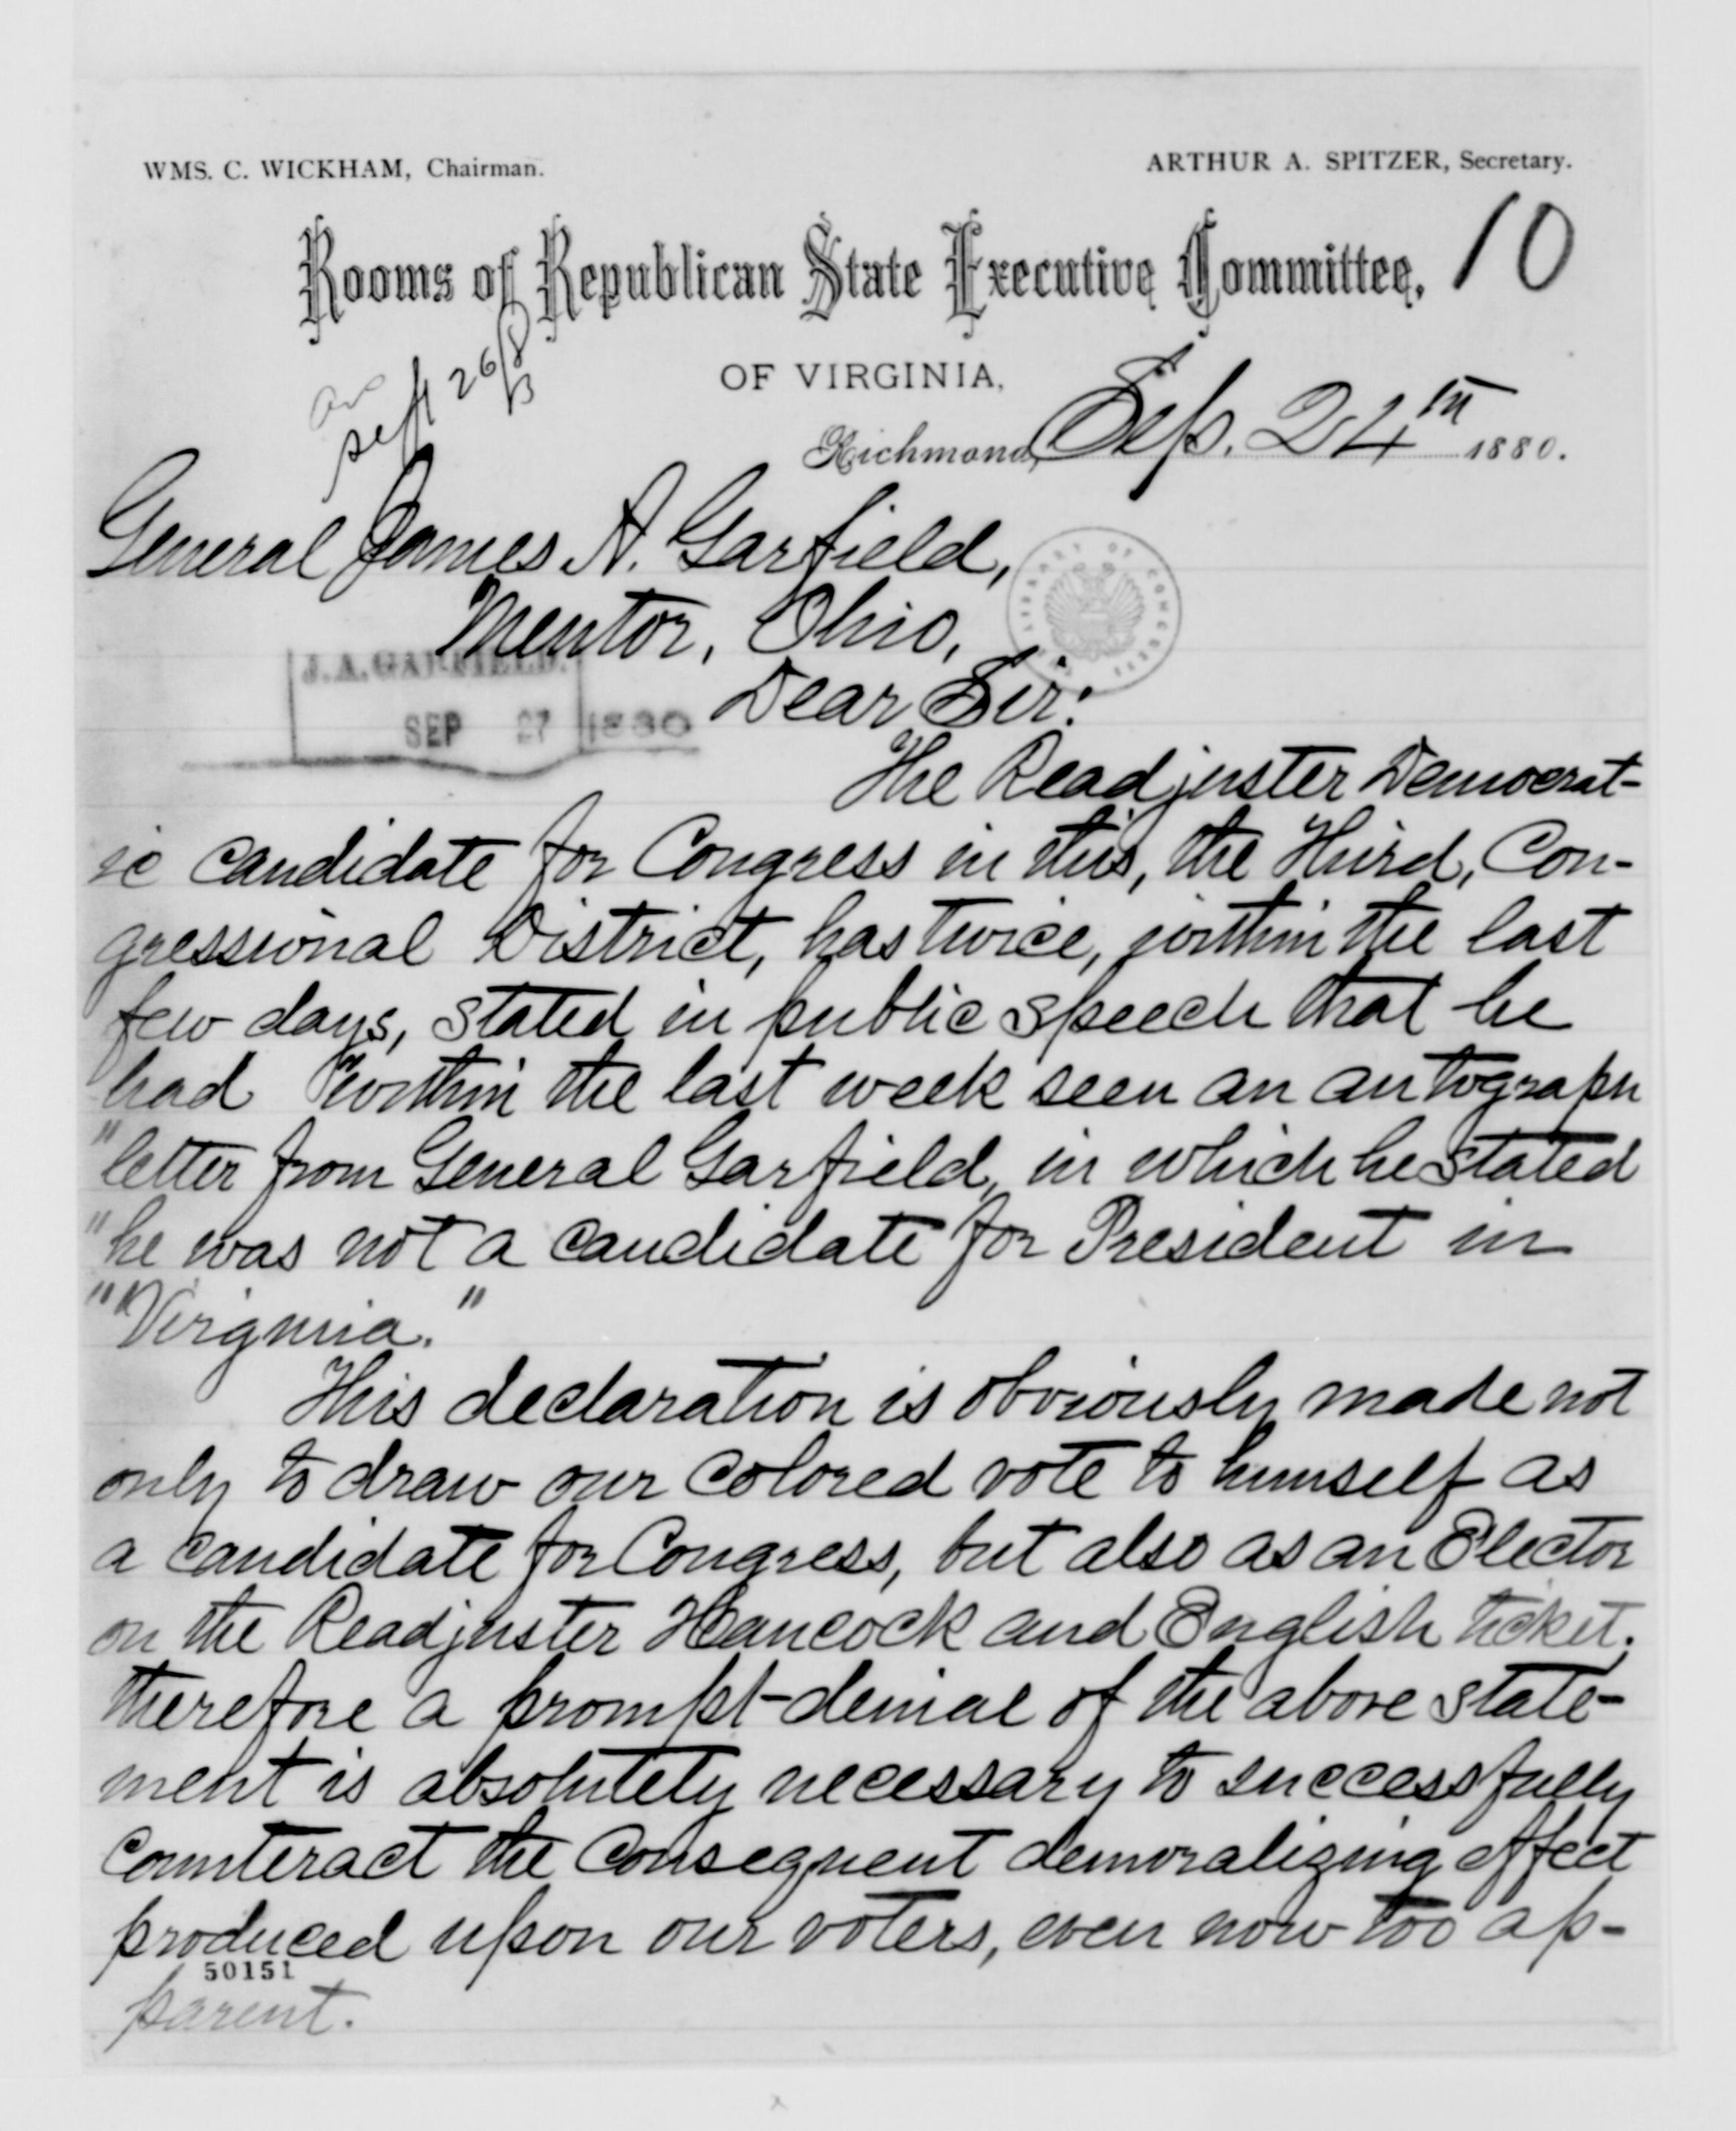 WMS. C. WICKHAM, Chairman.
ARTHUR A. SPITZER, Secretary.
Rooms of Republican State Executive Committee,
10
OF VIRGINIA,
Sept 26/8
Richmond, Sep. 24th 1880.
General James A. Garfield,
Mentor, Ohio,
J.A. GARFIELD.
SEP 27 1880
LIBRARY OF CONGRESS
Dear Sir:
The Readjuster Democrat-
ic candidate for Congress in this, the Third, Con-
gressional District, has twice, within the last
few days, stated in public speech that he
had "within the last week seen an autograph
"letter from General Garfield, in which he stated
"he was not a candidate for President in
"Virginia."
This declaration is obviously made not
only to draw our colored vote to himself as
a candidate for Congress, but also as an Elector
on the Readjuster Hancock and English ticket.
therefore a prompt denial of the above state-
ment is absolutely necessary to successfully
counteract the consequent demoralizing effect
produced upon our voters, even now too ap-
50151
parent.